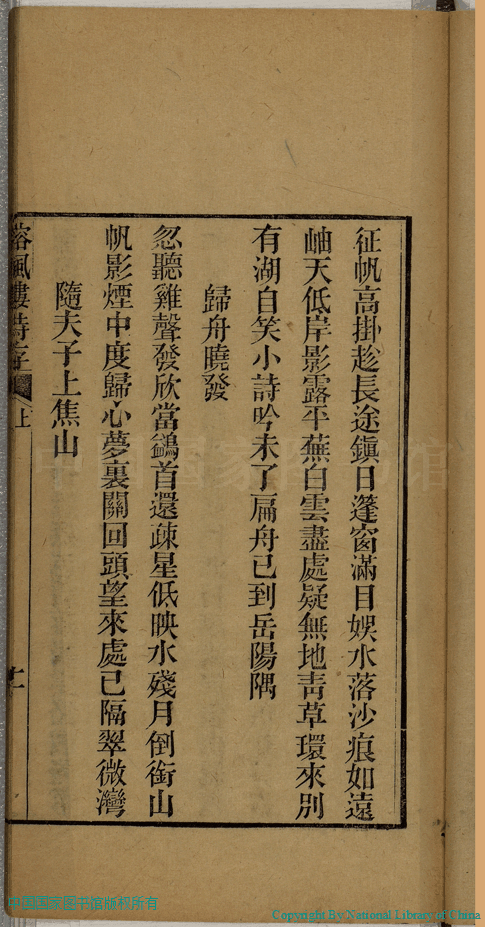 征帆高掛趁長途鎮日蓬窗滿目娛水落沙痕如遠
岫天低岸影露平蕪白雲盡處疑無地靑草環來別
有湖自笑小詩吟未了扁舟已到岳陽隅
歸舟曉發
忽聽雞聲發欣當鷁首還疎星低映水殘月倒銜山
帆影煙中度歸心夢裏關回頭望來處已隔翠微灣
隨夫子上焦山
樓詩存 上
十一
中国国家图书馆版权所有
Copyright By National Library of China